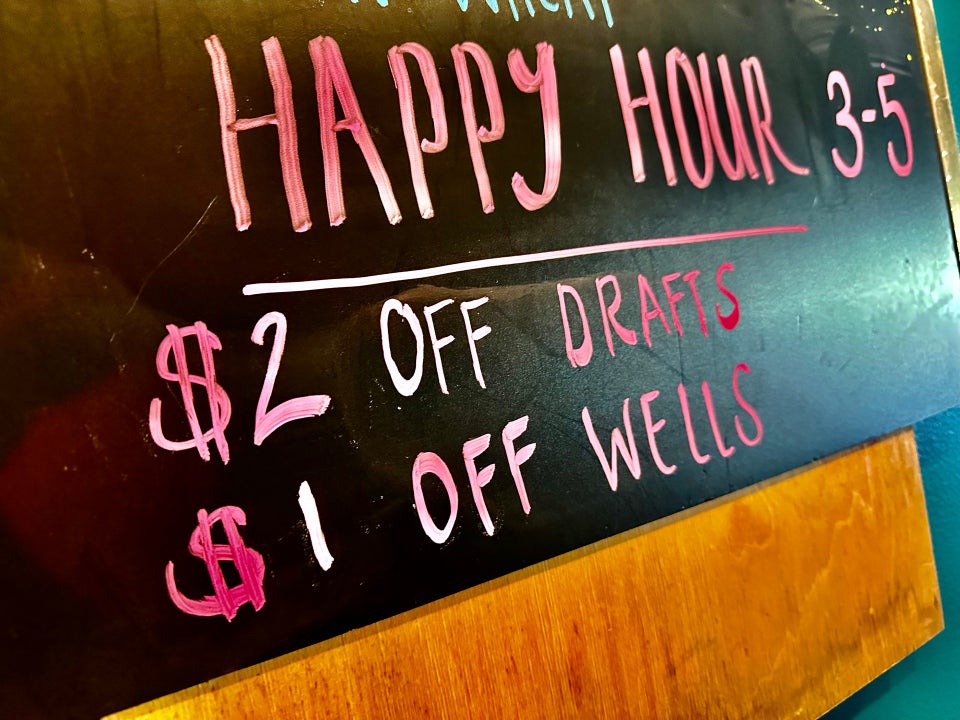 HAPPY HOUR 3-5
$2 OFF DRAFTS
$1 OFF WELLS